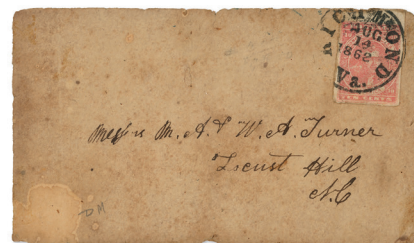 RICHMOND
AUG
14
1862
Va.
TEN CENTS
Mess rs M. A & W. A. Turner
Locust Hill
N.C
DM